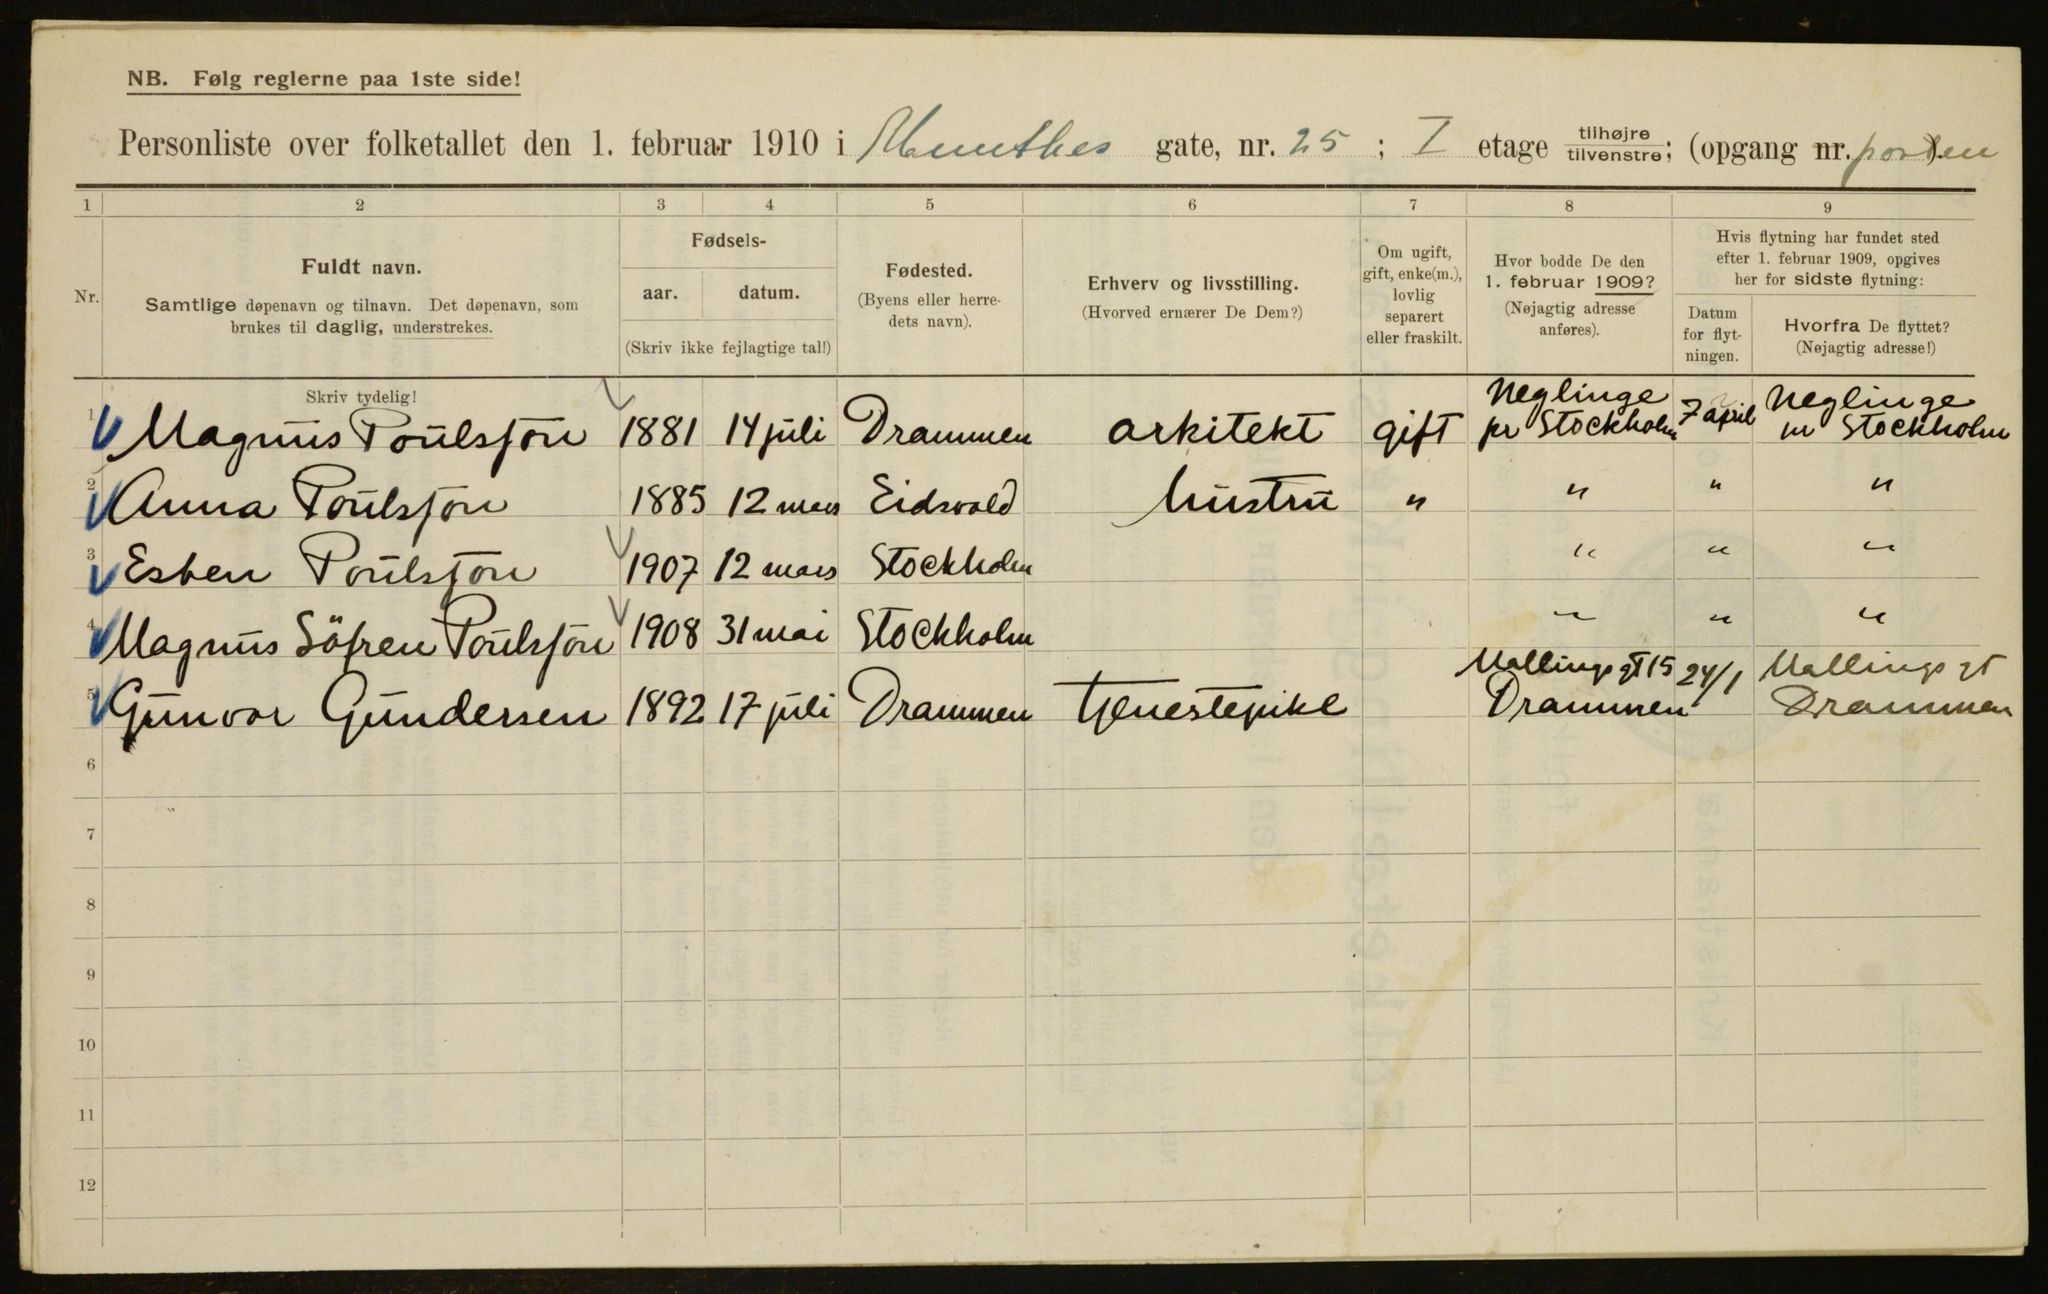 NB. Følg reglerne paa 1ste side!
Personliste over folketallet den 1. februar 1910 i Munthes gate, nr. 25 ; I etage tilhøjre/tilvenstre; (opgang nr. porten).
1 2 3 4 5 6 7 8 9
Nr.
Fuldt navn.
Samtlige døpenavn og tilnavn. Det døpenavn, som
brukes til daglig, understrekes.
Fødsels-
aar. datum.
(Skriv ikke fejlagtige tal!)
Fødested.
(Byens eller herre-
dets navn).
Erhverv og livsstilling.
(Hvorved ernærer De Dem?)
Om ugift,
gift, enke(m.),
lovlig
separert
eller fraskilt.
Hvor bodde De den
1. februar 1909?
(Nøjagtig adresse
anføres).
Hvis flytning har fundet sted
efter 1. februar 1909, opgives
her for sidste flytning:
Datum
for flyt-
ningen.
Hvorfra De flyttet?
(Nøjagtig adresse!)
Skriv tydelig!
1 Magnus Poulsson 1881 14 juli Drammen arkitekt gift Neglinge pr Stockholm 7 april Neglinge pr Stockholm
2 Anna Poulsson 1885 12 mars Eidsvold hustru " " " "
3 Esben Poulsson 1907 12 mars Stockholm " " "
4 Magnus Söfren Poulsson 1908 31 mai Stockholm " " "
5 Gunvor Gundersen 1892 17 juli Drammen tjenestepike Mallings gt 15 Drammen 24/1 Mallings gt Drammen
6
7
8
9
10
11
12